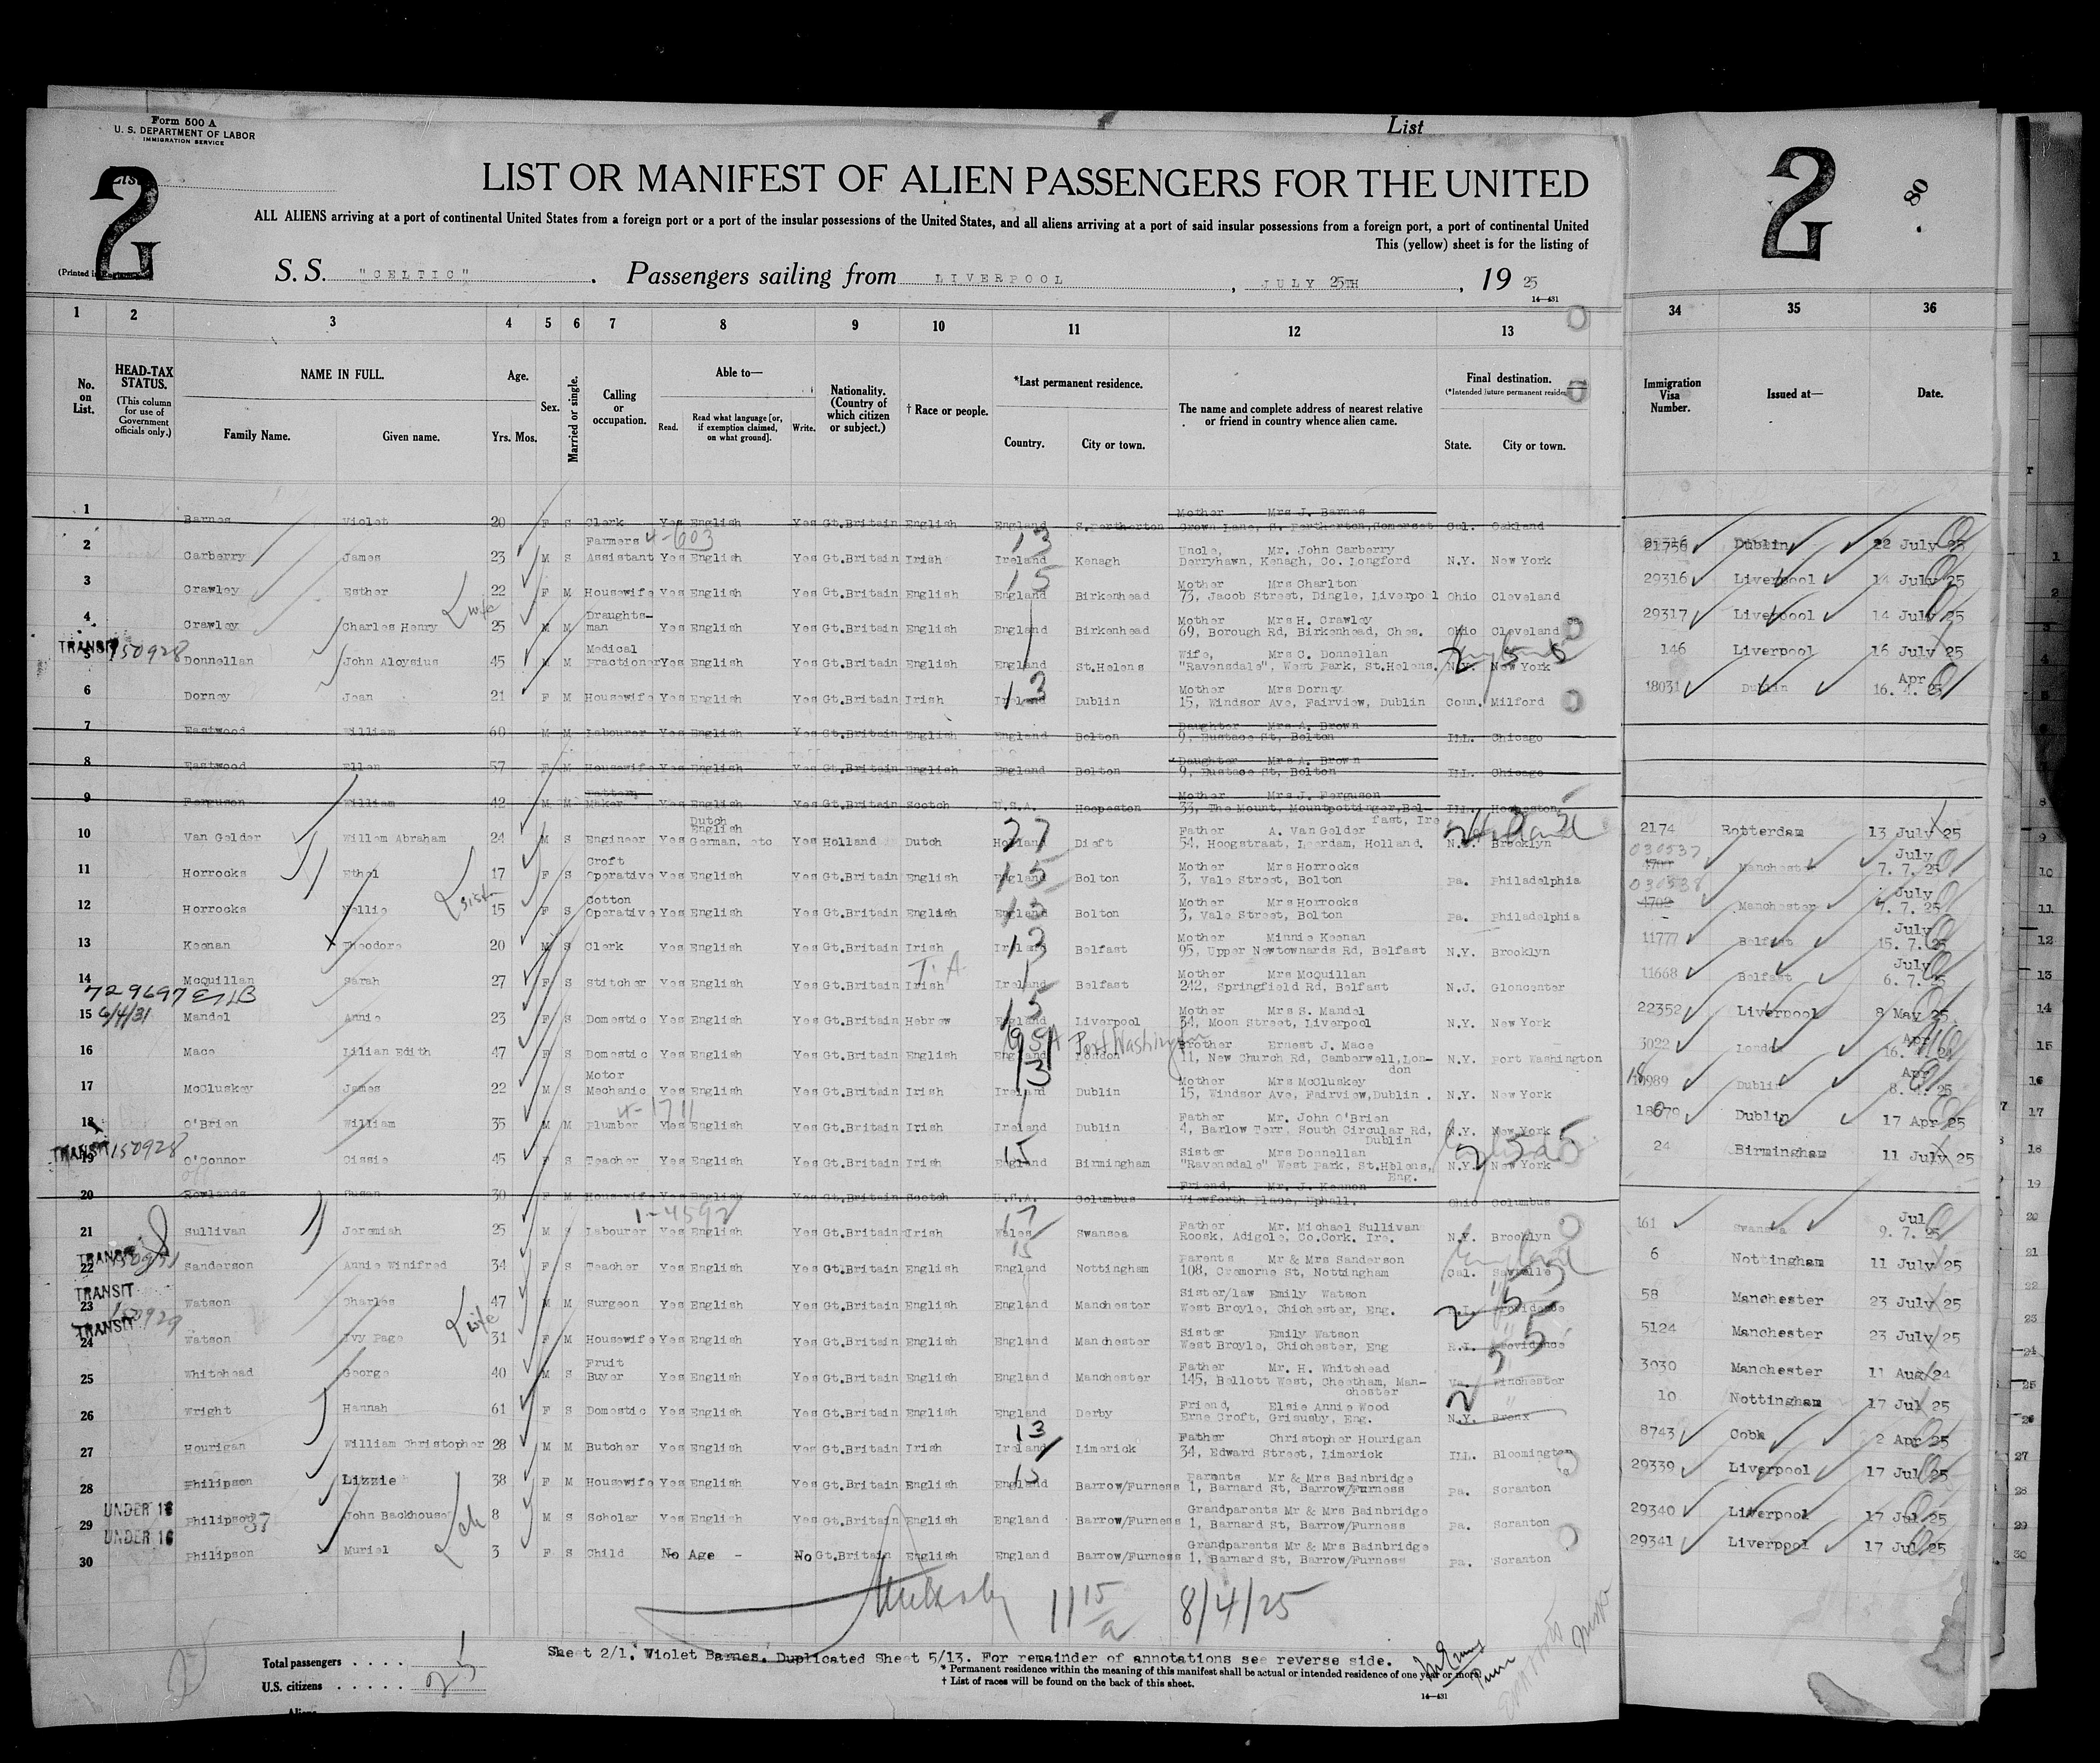 Form 500 A
U. S. DEPARTMENT OF LABOR
IMMIGRATION SERVICE
List
2
2
80
LIST OR MANIFEST OF ALIEN PASSENGERS FOR THE UNITED
ALL ALIENS arriving at a port of continental United States from a foreign port or a port of the insular possessions of the United States, and all aliens arriving at a port of said insular possessions from a foreign port, a port of continental United
This (yellow) sheet is for the listing of
S. S. "CELTIC" . Passengers sailing from LIVERPOOL , JULY 25TH , 19 25
14—431
1 2 3 4 5 6 7 8 9 10 11 12 13 34 35 36
No. on List.
HEAD-TAX STATUS. (This column for use of Government officials only.)
NAME IN FULL. Family Name. Given name.
Age. Yrs. Mos.
Sex.
Married or single.
Calling or occupation.
Able to— Read. Read what language [or, if exemption claimed, on what ground]. Write.
Nationality. (Country of which citizen or subject.)
† Race or people.
*Last permanent residence. Country. City or town.
The name and complete address of nearest relative or friend in country whence alien came.
Final destination. (*Intended future permanent residence) State. City or town.
Immigration Visa Number.
Issued at—
Date.
1 Barnes Violet 20 F S Clerk Yes English Yes Gt.Britain English England S.Pertherton Mother Mrs J. Barnes Crown Lane, S. Pertherton, Somerset Cal. Oakland
2 Carberry James 23 M S Farmers Assistant Yes English 4-603 Yes Gt.Britain Irish Ireland 13 Kenagh Uncle, Mr. John Carberry Derryhawn, Kenagh, Co. Longford N.Y. New York 21756 Dublin 22 July 25
3 Crawley Esther 22 F M Housewife Yes English Yes Gt.Britain English England 15 Birkenhead Mother Mrs Charlton 73, Jacob Street, Dingle, Liverpool Ohio Cleveland 29316 Liverpool 14 July 25
4 Crawley Charles Henry wife 25 M M Draughtsman Yes English Yes Gt.Britain English England Birkenhead Mother Mrs H. Crawley 69, Borough Rd, Birkenhead, Ches. Ohio Cleveland 29317 Liverpool 14 July 25
TRANSIT 150928
5 Donnellan John Aloysius 45 M M Medical Practioner Yes English Yes Gt.Britain English England St.Helens Wife, Mrs C. Donnellan "Ravensdale", West Park, St.Helens. N.Y. New York 146 Liverpool 16 July 25
6 Dorney Jean 21 F M Housewife Yes English Yes Gt.Britain Irish Ireland 13 Dublin Mother Mrs Dorney 15, Windsor Ave, Fairview, Dublin Conn. Milford 18031 Dublin Apr 16. 4. 25
7 Eastwood William 60 M M Labourer Yes English Yes Gt.Britain English England Bolton Daughter Mrs A. Brown 9, Eustace St, Bolton ILL. Chicago
8 Eastwood Ellen 57 F M Housewife Yes English Yes Gt.Britain English England Bolton Daughter Mrs A. Brown 9, Eustace St, Bolton ILL. Chicago
9 Ferguson William 42 M M Pattern Maker Yes English Yes Gt.Britain Scotch U.S.A. Hoopeston Mother Mrs J. Ferguson 33, The Mount, Mountpottinger, Belfast, Ire ILL. Hoopeston
10 Van Gelder Willem Abraham 24 M S Engineer Yes Dutch English German. etc Yes Holland Dutch Holland 27 Father A. Van Gelder 54, Hoogstraat, Leerdam, Holland. N.Y. Brooklyn 2174 Rotterdam 13 July 25
11 Horrocks Ethel 17 F S Croft Operative Yes English Yes Gt.Britain English England 15 Bolton Mother Mrs Horrocks 3, Vale Street, Bolton Pa. Philadelphia 030537 Manchester July 7. 7. 25
12 Horrocks Nellie sist 15 F S Cotton Operative Yes English Yes Gt.Britain English England Bolton Mother Mrs Horrocks 3, Vale Street, Bolton Pa. Philadelphia 030538 4702 Manchester July 7. 7. 25
13 Keenan Theodore 20 M S Clerk Yes English Yes Gt.Britain Irish Ireland 13 Belfast Mother Minnie Keenan 95, Upper Newtownards Rd, Belfast N.Y. Brooklyn 11777 Belfast July 15. 7. 25
14 McQuillan Sarah 27 F S Stitcher Yes English Yes Gt.Britain Irish Ireland Belfast Mother Mrs McQuillan 242, Springfield Rd, Belfast N.J. Glencenter 11668 Belfast July 6. 7. 25
729697 6/4/31
15 Mandel Annie 23 F S Domestic Yes English Yes Gt.Britain Hebrew England 15 Liverpool Mother Mrs S. Mandel 34, Moon Street, Liverpool N.Y. New York 22352 Liverpool 8 May 25
16 Mace Lilian Edith 47 F S Domestic Yes English Yes Gt.Britain English England London Port Washington Brother Ernest J. Mace 11, New Church Rd, Camberwell, London N.Y. Port Washington 3022 London Apr
17 McCluskey James 22 M S Motor Mechanic Yes English Yes Gt.Britain Irish Ireland 13 Dublin Mother Mrs McCluskey 15, Windsor Ave, Fairview, Dublin. N.Y. New York Dublin Apr 8. 4. 25
18 O'Brien William 35 M M Plumber Yes English 4-1711 Yes Gt.Britain Irish Ireland Dublin Father Mr. John O'Brien 4, Barlow Terr, South Circular Rd, Dublin N.Y. New York 18079 Dublin 17 Apr 25
TRANSIT 150928
19 O'Connor Cissie 45 F S Teacher Yes English Yes Gt.Britain Irish England 15 Birmingham Sister Mrs Donnellan "Ravensdale" West Park, St.Hblens, Eng. N.Y. New York 24 Birmingham 11 July 25
20 Rowlands Susan 30 F M Housewife Yes English Yes Gt.Britain Scotch U.S.A. Columbus Friend, Mr. J. Keanon Viewforth Place, Uphall. Ohio Columbus
21 Sullivan Jeremiah 25 M S Labourer Yes English 1-4592 Yes Gt.Britain Irish Wales 17 Swansea Father Mr. Michael Sullivan Roosk, Adigole, Co.Cork. Ire. N.Y. Brooklyn 161 Swansea Jul 9. 7. 25
TRANSIT
22 Sanderson Annie Winifred 34 F S Teacher Yes English Yes Gt.Britain English England 15 Nottingham Parents Mr & Mrs Sanderson 108, Cremorne St, Nottingham Cal. Sawtelle 6 Nottingham 11 July 25
TRANSIT
23 Watson Charles 47 M M Surgeon Yes English Yes Gt.Britain English England Manchester Sister/law Emily Watson West Broyle, Chichester, Eng. R.I. Providence 58 Manchester 23 July 25
TRANSIT 150929
24 Watson Ivy Page wife 31 F M Housewife Yes English Yes Gt.Britain English England Manchester Sister Emily Watson West Broyle, Chichester, Eng R.I. Providence 5124 Manchester 23 July 25
25 Whitehead George 40 M S Fruit Buyer Yes English Yes Gt.Britain English England Manchester Father Mr. H. Whitehead 145, Bellott West, Cheetham, Manchester Va. Winchester 3030 Manchester 11 Aug 24
26 Wright Hannah 61 F S Domestic Yes English Yes Gt.Britain English England Derby Friend, Elsie Annie Wood Erne Croft, Grimsby, Eng. N.Y. Bronx 10 Nottingham 17 Jul 25
27 Hourigan William Christopher 28 M M Butcher Yes English Yes Gt.Britain Irish Ireland 13 Limerick Father Christopher Hourigan 34, Edward Street, Limerick ILL. Bloomington 8743 Cobh 2 Apr 25
28 Philipson Lizzie 38 F M Housewife Yes English Yes Gt.Britain English England 15 Barrow/Furness Parents Mr & Mrs Bainbridge 1, Barnard St, Barrow/Furness Pa. Scranton 29339 Liverpool 17 Jul 25
UNDER 16
29 Philipson John Backhouse ch 8 M S Scholar Yes English Yes Gt.Britain English England Barrow/Furness Grandparents Mr & Mrs Bainbridge 1, Barnard St, Barrow/Furness Pa. Scranton 29340 Liverpool 17 Jul 25
UNDER 16
30 Philipson Muriel 3 F S Child No Age - No Gt.Britain English England Barrow/Furness Grandparents Mr & Mrs Bainbridge 1, Barnard St, Barrow/Furness Pa. Scranton 29341 Liverpool 17 Jul 25
11 15/a 8/4/25
Sheet 2/1. Violet Barnes. Duplicated Sheet 5/13. For remainder of annotations see reverse side.
Total passengers . . . .
U.S. citizens . . . . .
* Permanent residence within the meaning of this manifest shall be actual or intended residence of one year or more.
† List of races will be found on the back of this sheet.
14—431
Aliens